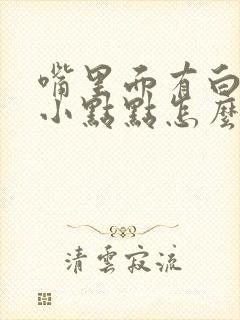 嘴里而有白
小點點怎麼
清雲寂流